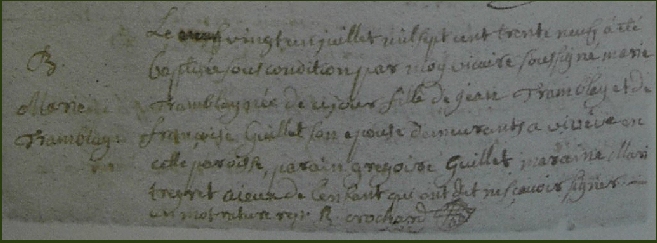 Le vingt un juillet mil sept cent trente neuf a été
B.
baptisée sous condition par moy vicaire soussigné marie
Marie
Tramblay
Tramblay née de ce jour fille de jean Tramblay et de
françoise Guillet son epouse demeurants a en
cette paroisse, parain gregoire Guillet maraine Mari
aieux de l'enfant qui ont dit ne sçavoir signer
un mot rature R. crochard